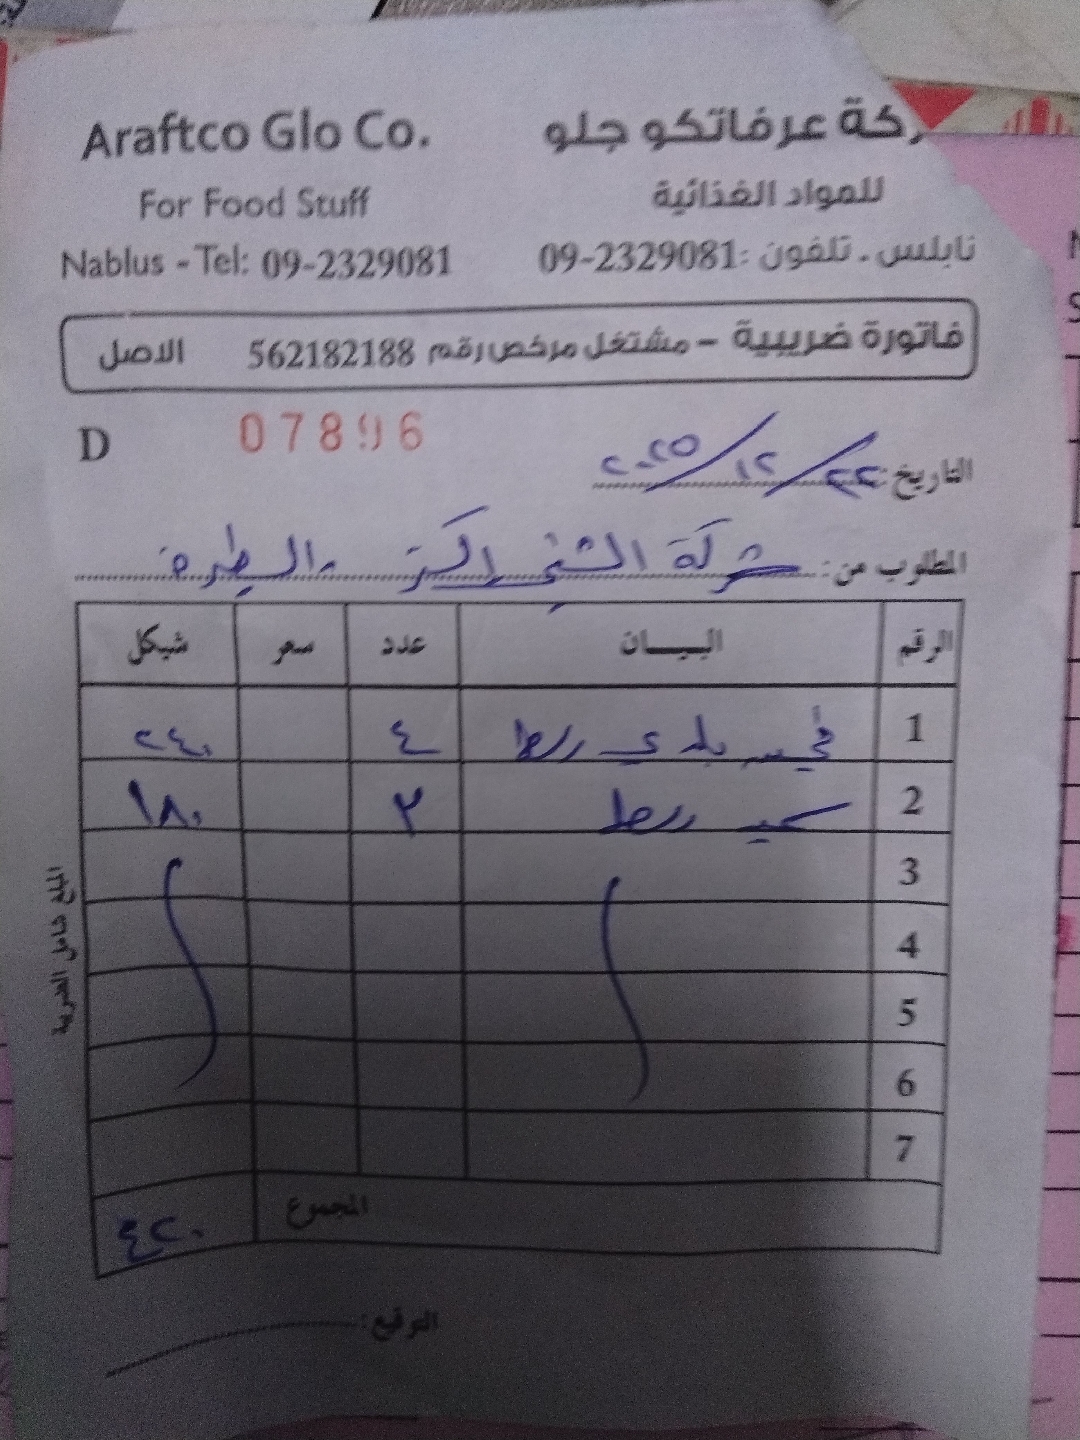 Araftco Glo Co.
ركة عرفاتكو جلو
For Food Stuff
للمواد الغذائية
Nablus - Tel: 09-2329081
نابلس . تلفون :09-2329081
فاتورة ضريبية – مشتغل مرخص رقم 562182188 الاصل
D 07896
التاريخ: ٢٢/١٢/٢٠٢٥
المطلوب من: شركة الشني - الطيرة
الرقم البيـــان عدد سعر شيكل
1 بلدي ربط ٤ ٢٤٠
2 ربط ٣ ١٨٠
3
4
5
6
7
المجموع ٤٢٠
التوقيع:
المبلغ شامل الضريبة